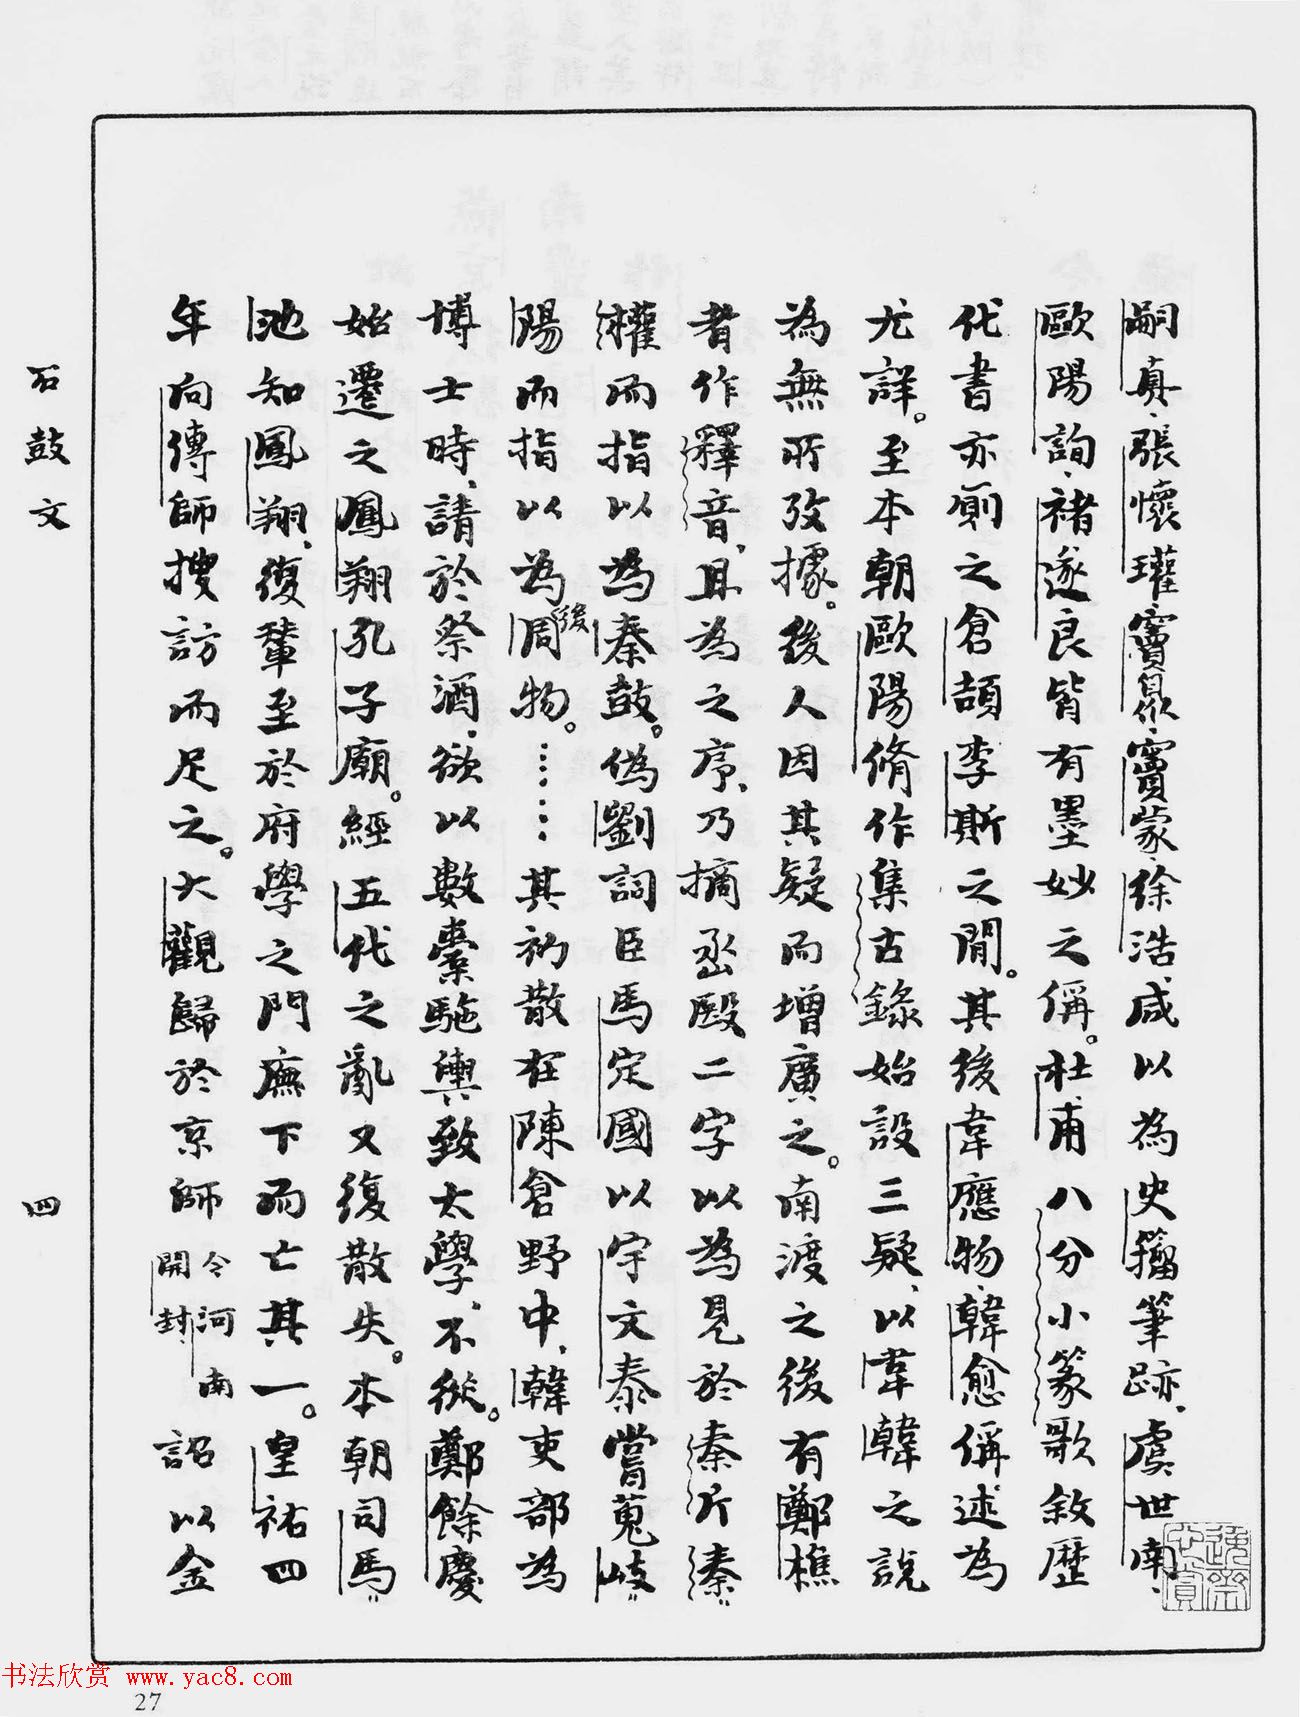 嗣真、張懷瓘、竇臮、竇蒙、徐浩、咸以為史籀筆跡、虞世南、
歐陽詢、褚遂良皆有墨妙之偁。杜甫八分小篆歌敘歷
代書亦廁之倉頡李斯之閒。其後韋應物、韓愈偁述為
尤詳。至本朝歐陽脩作集古錄始設三疑、以韋韓之說
為無所攷據。後人因其疑而增廣之。南渡之後有鄭樵
者作釋音、且為之序、乃摘丞殹二字以為見於秦斤秦
權而指以為秦鼓。偽劉詞臣馬定國以宇文泰嘗蒐岐
陽而指以為後周物。……其初散在陳倉野中、韓吏部為
博士時、請於祭酒、欲以數橐駞輿致太學、不從。鄭餘慶
始遷之鳳翔孔子廟。經五代之亂又復散失。本朝司馬
池知鳳翔、復輦至於府學之門廡下而亡其一。皇祐四
年向傳師搜訪而足之。大觀歸於京師今河南開封詔以金
石鼓文
四
书法欣赏 www.yac8.com
27